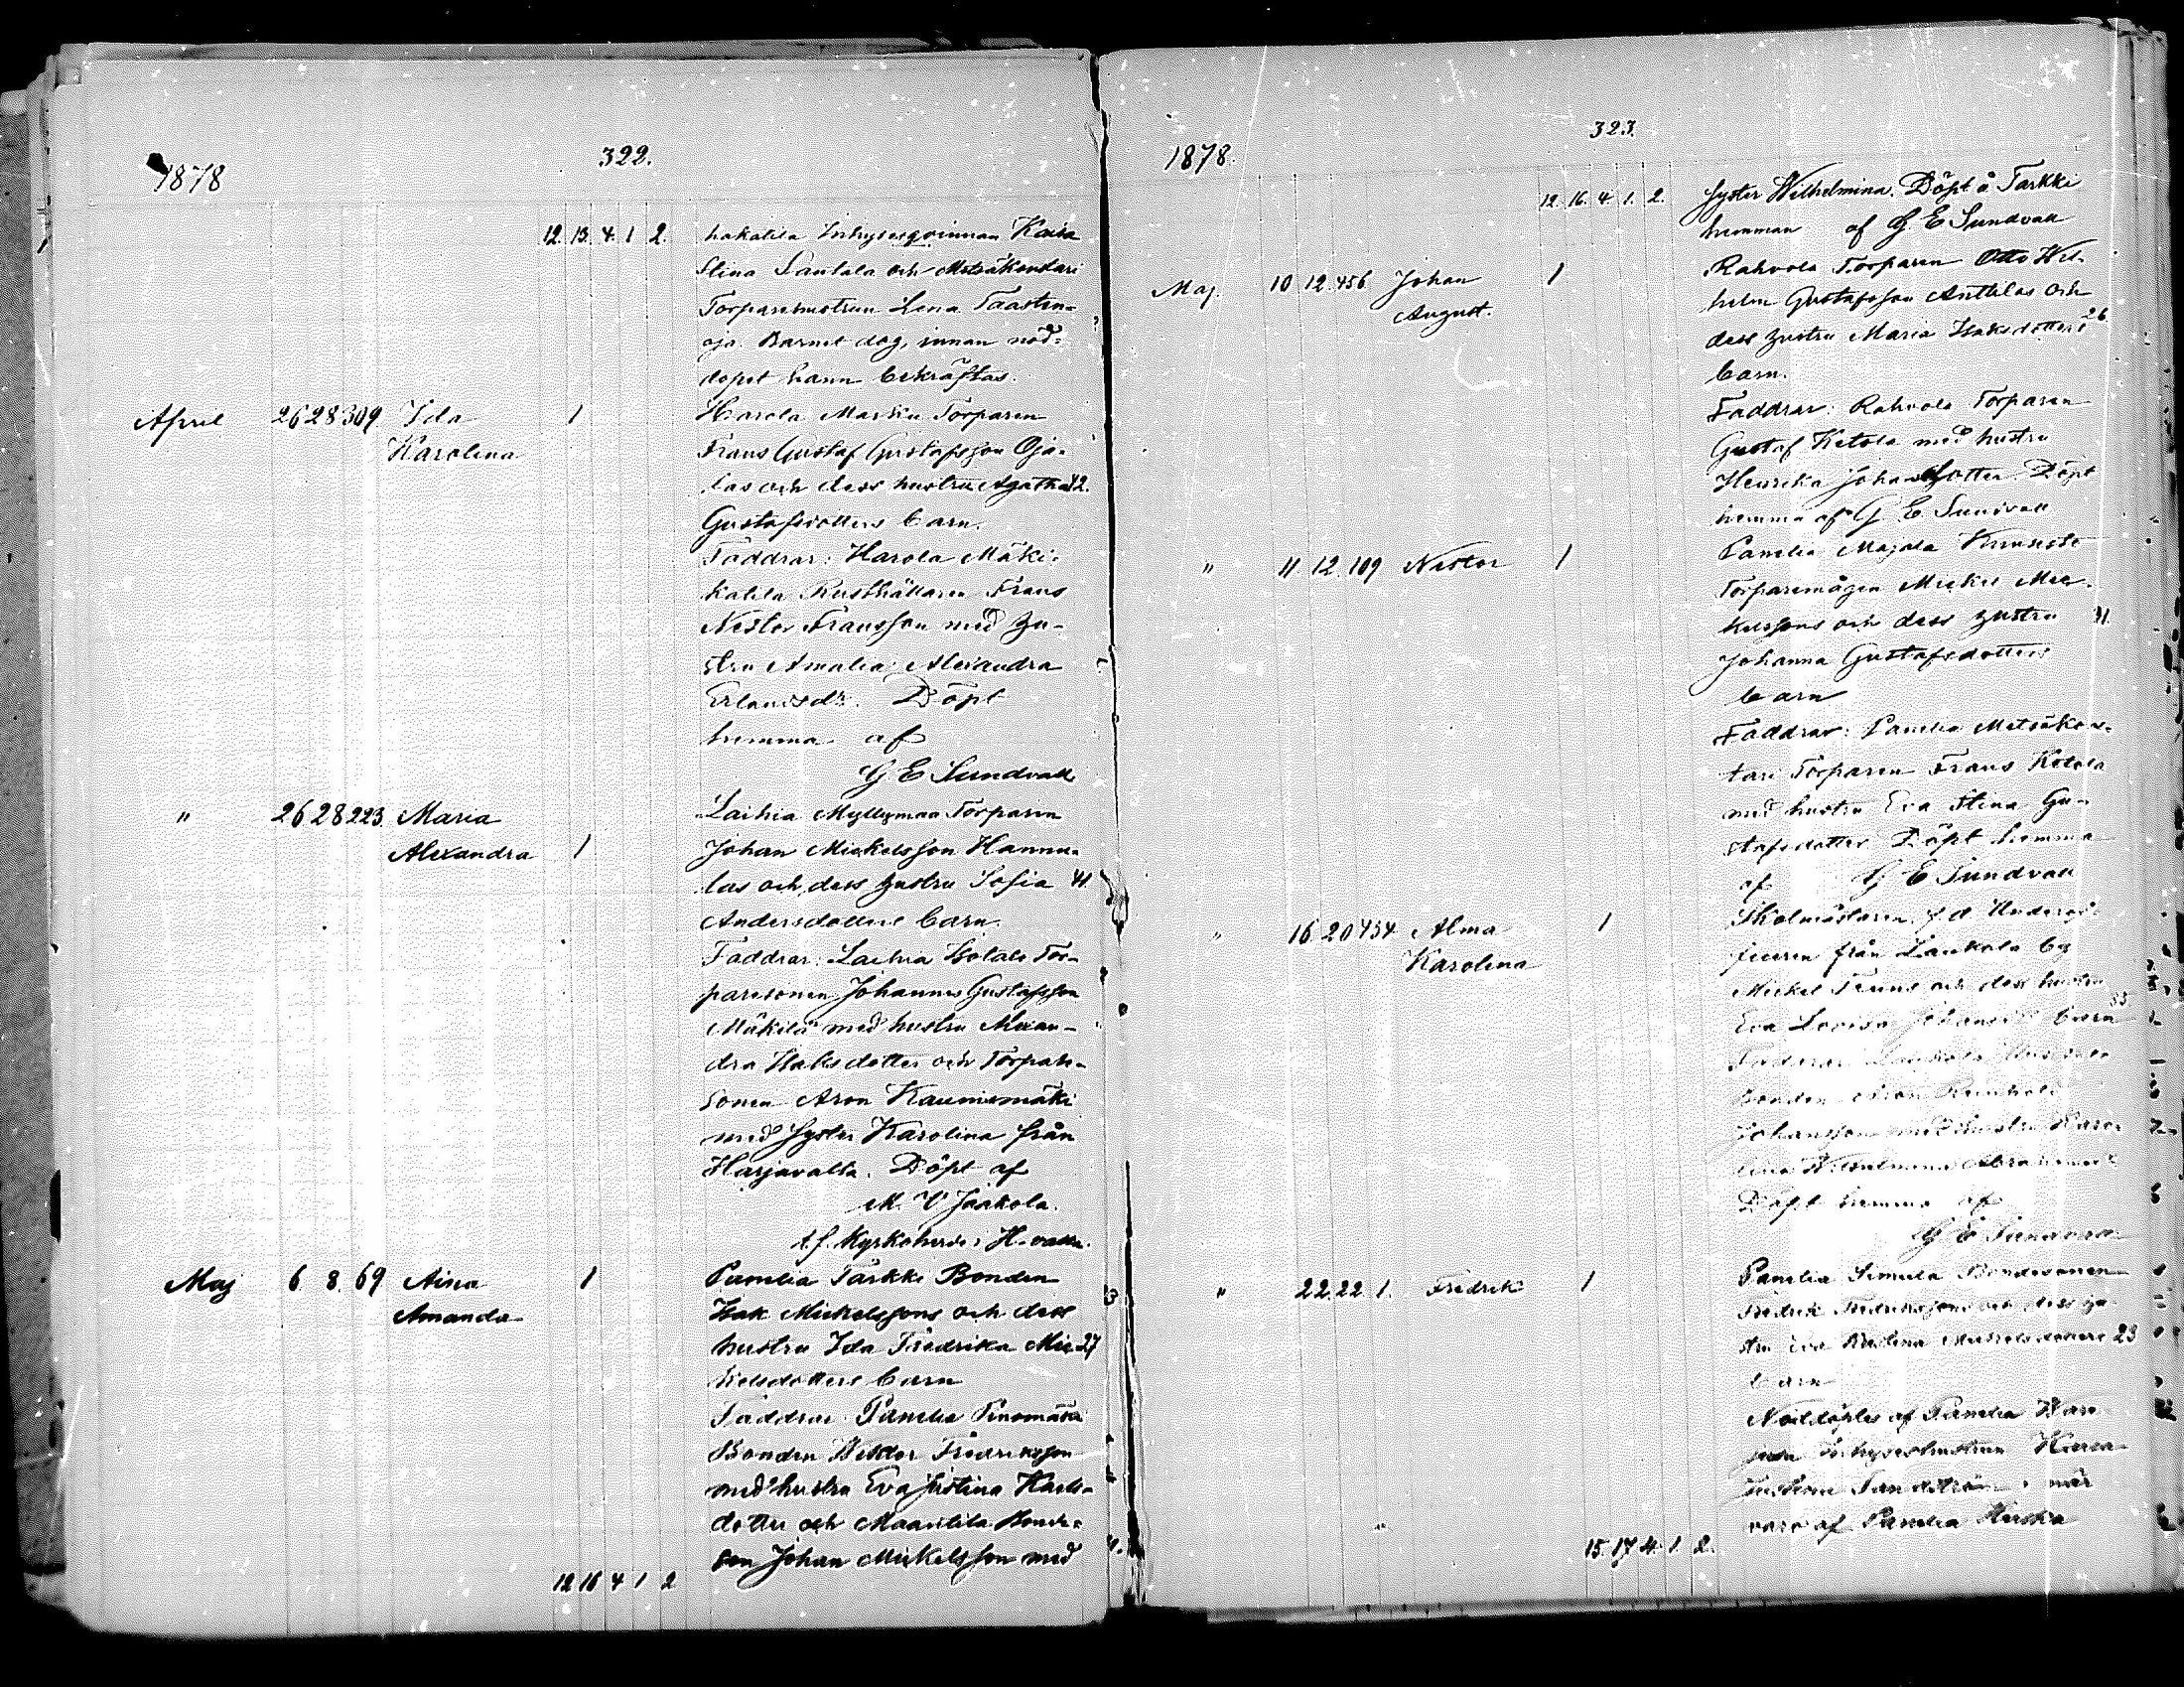 322.
1878
12. 13. 4. 1 2. hakatila Inhysesqvinnan Kaisa
Stina Santala och Metsäkontari
Torparehustrun Lena Taasten-
oja. Barnet dog, innan nöd-
dopet hann bekräftas.
April 26 28 309 Ida 1 Harola Marku Torparen
Karolina Frans Gustaf Gustafsson Oja-
las och dess hustru Agatha 42.
Gustafsdotters barn.
Faddrar: Harola Mäki-
katila Rusthållaren Frans
Nestor Fransson med hu-
stru Amalia Alexandra
Erlandsdr. Döpt
hemma af
G E Sundvall
" 26 28 223 Maria Laihia Myllymaa Torparen
Alexandra 1 Johan Mickelsson Hannu-
las och dess hustru Sofia 41.
Andersdotters barn.
Faddrar: Laihia Isotalo Tor-
paresonen Johannes Gustafsson
Mäkilä med hustru Alexan-
dra Isaksdotter och Torpare-
sonen Aron Kaunismäki
med syster Karolina från
Harjavalta. Döpt af
M. V Jaakola.
t.f. Kyrkoherde i H-valta.
Maj 6. 8. 69 Aina 1 Panelia Tarkki Bonden
Amanda Isak Mickelssons och dess
hustru Ida Fredrika Mic- 27
kelsdotters barn
Faddrar: Panelia Pinomäki
Bonden Viktor Fredriksson
med hustru Eva Justina Karls-
dotter och Maantila Bonde-
son Johan Mickelsson med
12 16 4 1 2
323.
1878.
12. 16. 4. 1. 2. syster Wilhelmina. Döpt å Tarkki
hemman af G. E Sundvall
Maj. 10 12. 456 Johan 1 Rahvola Torparen Otto Wil-
August. helm Gustafsson Anttilas och
dess hustru Maria Isaksdotters 26.
barn.
Faddrar: Rahvola Torparen
Gustaf Ketola med hustru
Henrika Johansdotter. Döpt
hemma af G. E. Sundvall
" 11. 12. 109 Nestor 1 Panelia Majala
Torparemågen Mickel Mic-
kelssons och dess hustru 41.
Johanna Gustafsdotters
barn
Faddrar: Panelia Metsäkon-
tari Torparen Frans Ketola
med hustru Eva Stina Gu-
stafsdotter Döpt hemma
af G E Sundvall
" 16. 20 434 Alma 1 Skolmästaren f.d. Underof-
Karolina ficeren från Laukola by
Mickel och dess hustru
Eva Lovisa Johansdr barn 35.
Faddrar Laukola
Bonden Reinhold
Johansson med hustru Karo-
lina Wilhelmina Abrahamsdr
Döpt hemma af
G E Sundvall
" 22 22 1. Fredrik 1 Panelia Simula Bondesonen
Fredrik Fredrikssons och dess hu-
stru Eva Mickelsdotters 23
barn
Nöddöptes af Panelia
Inhyseshustrun
Sandström i när-
varo af Panelia
15. 17. 4. 1. 2.